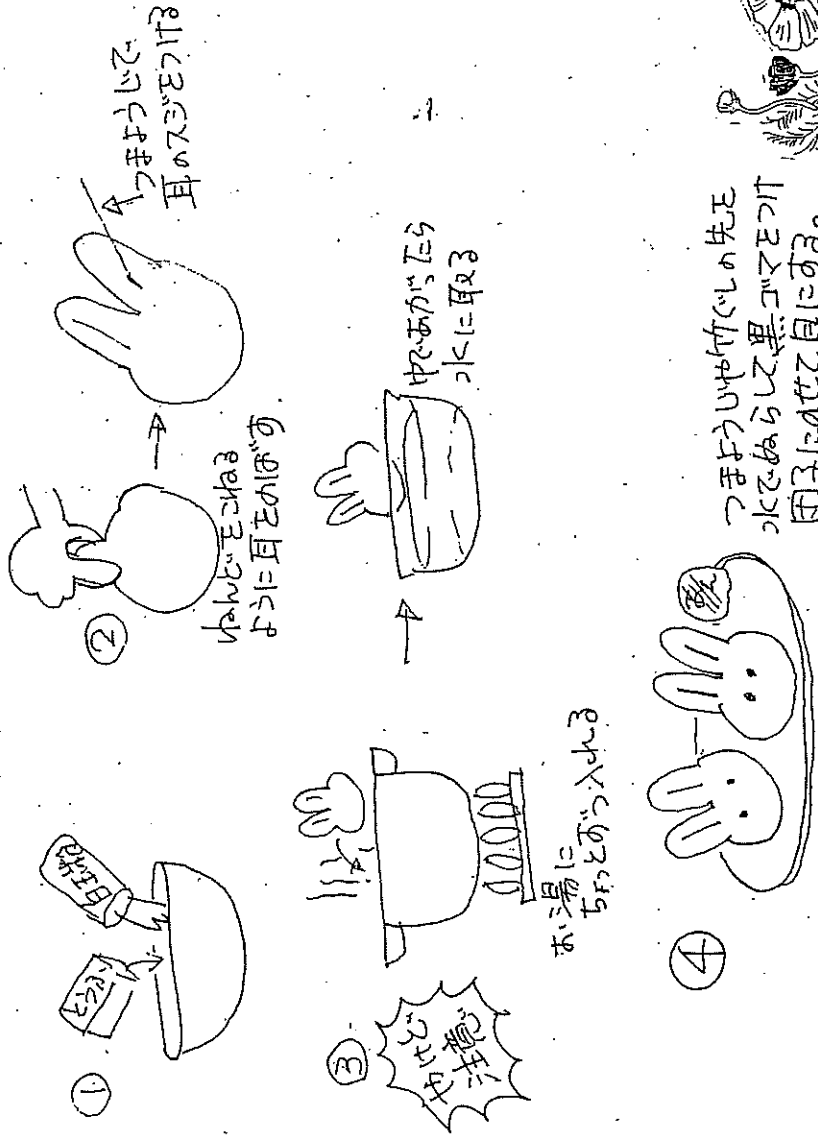 ①
とうふ
白玉粉
②
ねんどをこねる
ように耳をのばす。
つまようじで
耳のスジをつける
③
やけど
注意
お湯に
ちょっとずつ入れる
ゆであがったら
水に取る
④
あん
つまようじや竹ぐしの先を
水でぬらして黒ゴマをつけ
団子にのせて目にする。